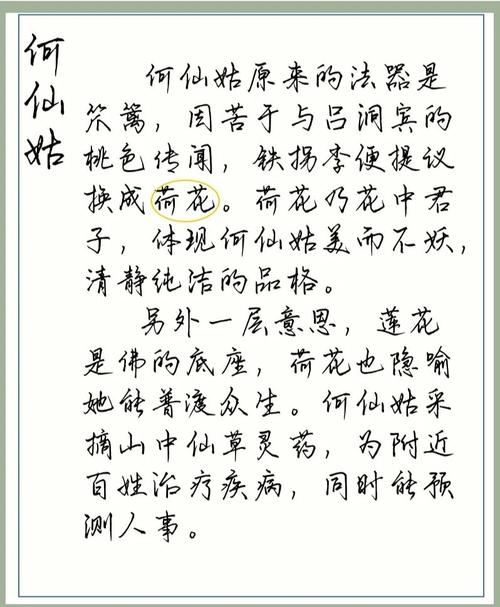 何仙姑
何仙姑原来的法器是
笊篱，因苦于与吕洞宾的
桃色传闻，铁拐李便提议
换成荷花。荷花乃花中君
子，体现何仙姑美而不妖，
清静纯洁的品格。
另外一层意思，莲花
是佛的底座，荷花也隐喻
她能普渡众生。何仙姑采
摘山中仙草灵药，为附近
百姓治疗疾病，同时能预
测人事。